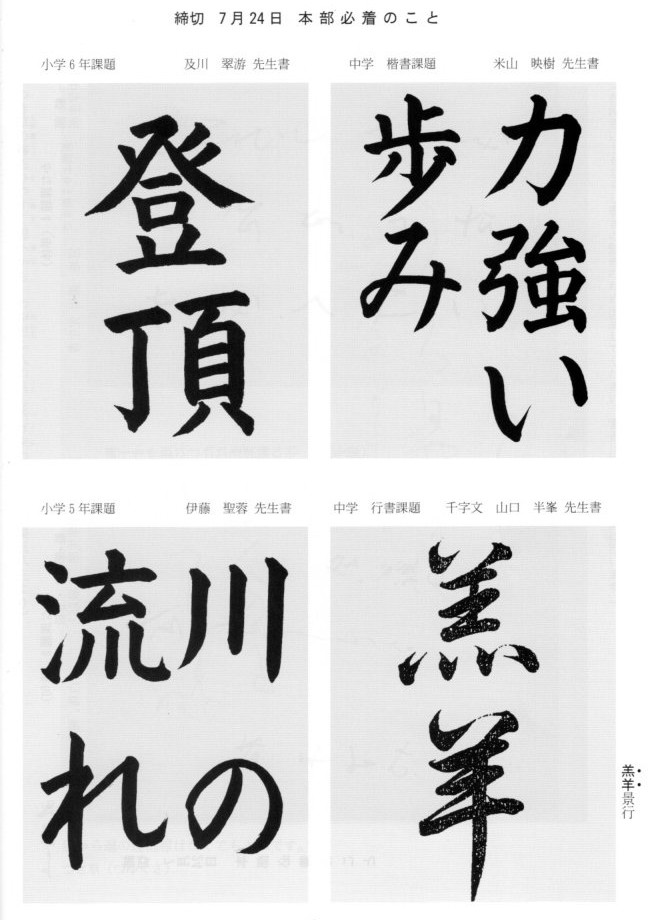 締切 7月24日 本部必着のこと
小学6年課題 及川 翠游 先生書
登頂
中学 楷書課題 米山 映樹 先生書
力強い
歩み
小学5年課題 伊藤 聖蓉 先生書
川の
流れ
中学 行書課題 千字文 山口 半峯 先生書
羔羊
羔羊景行